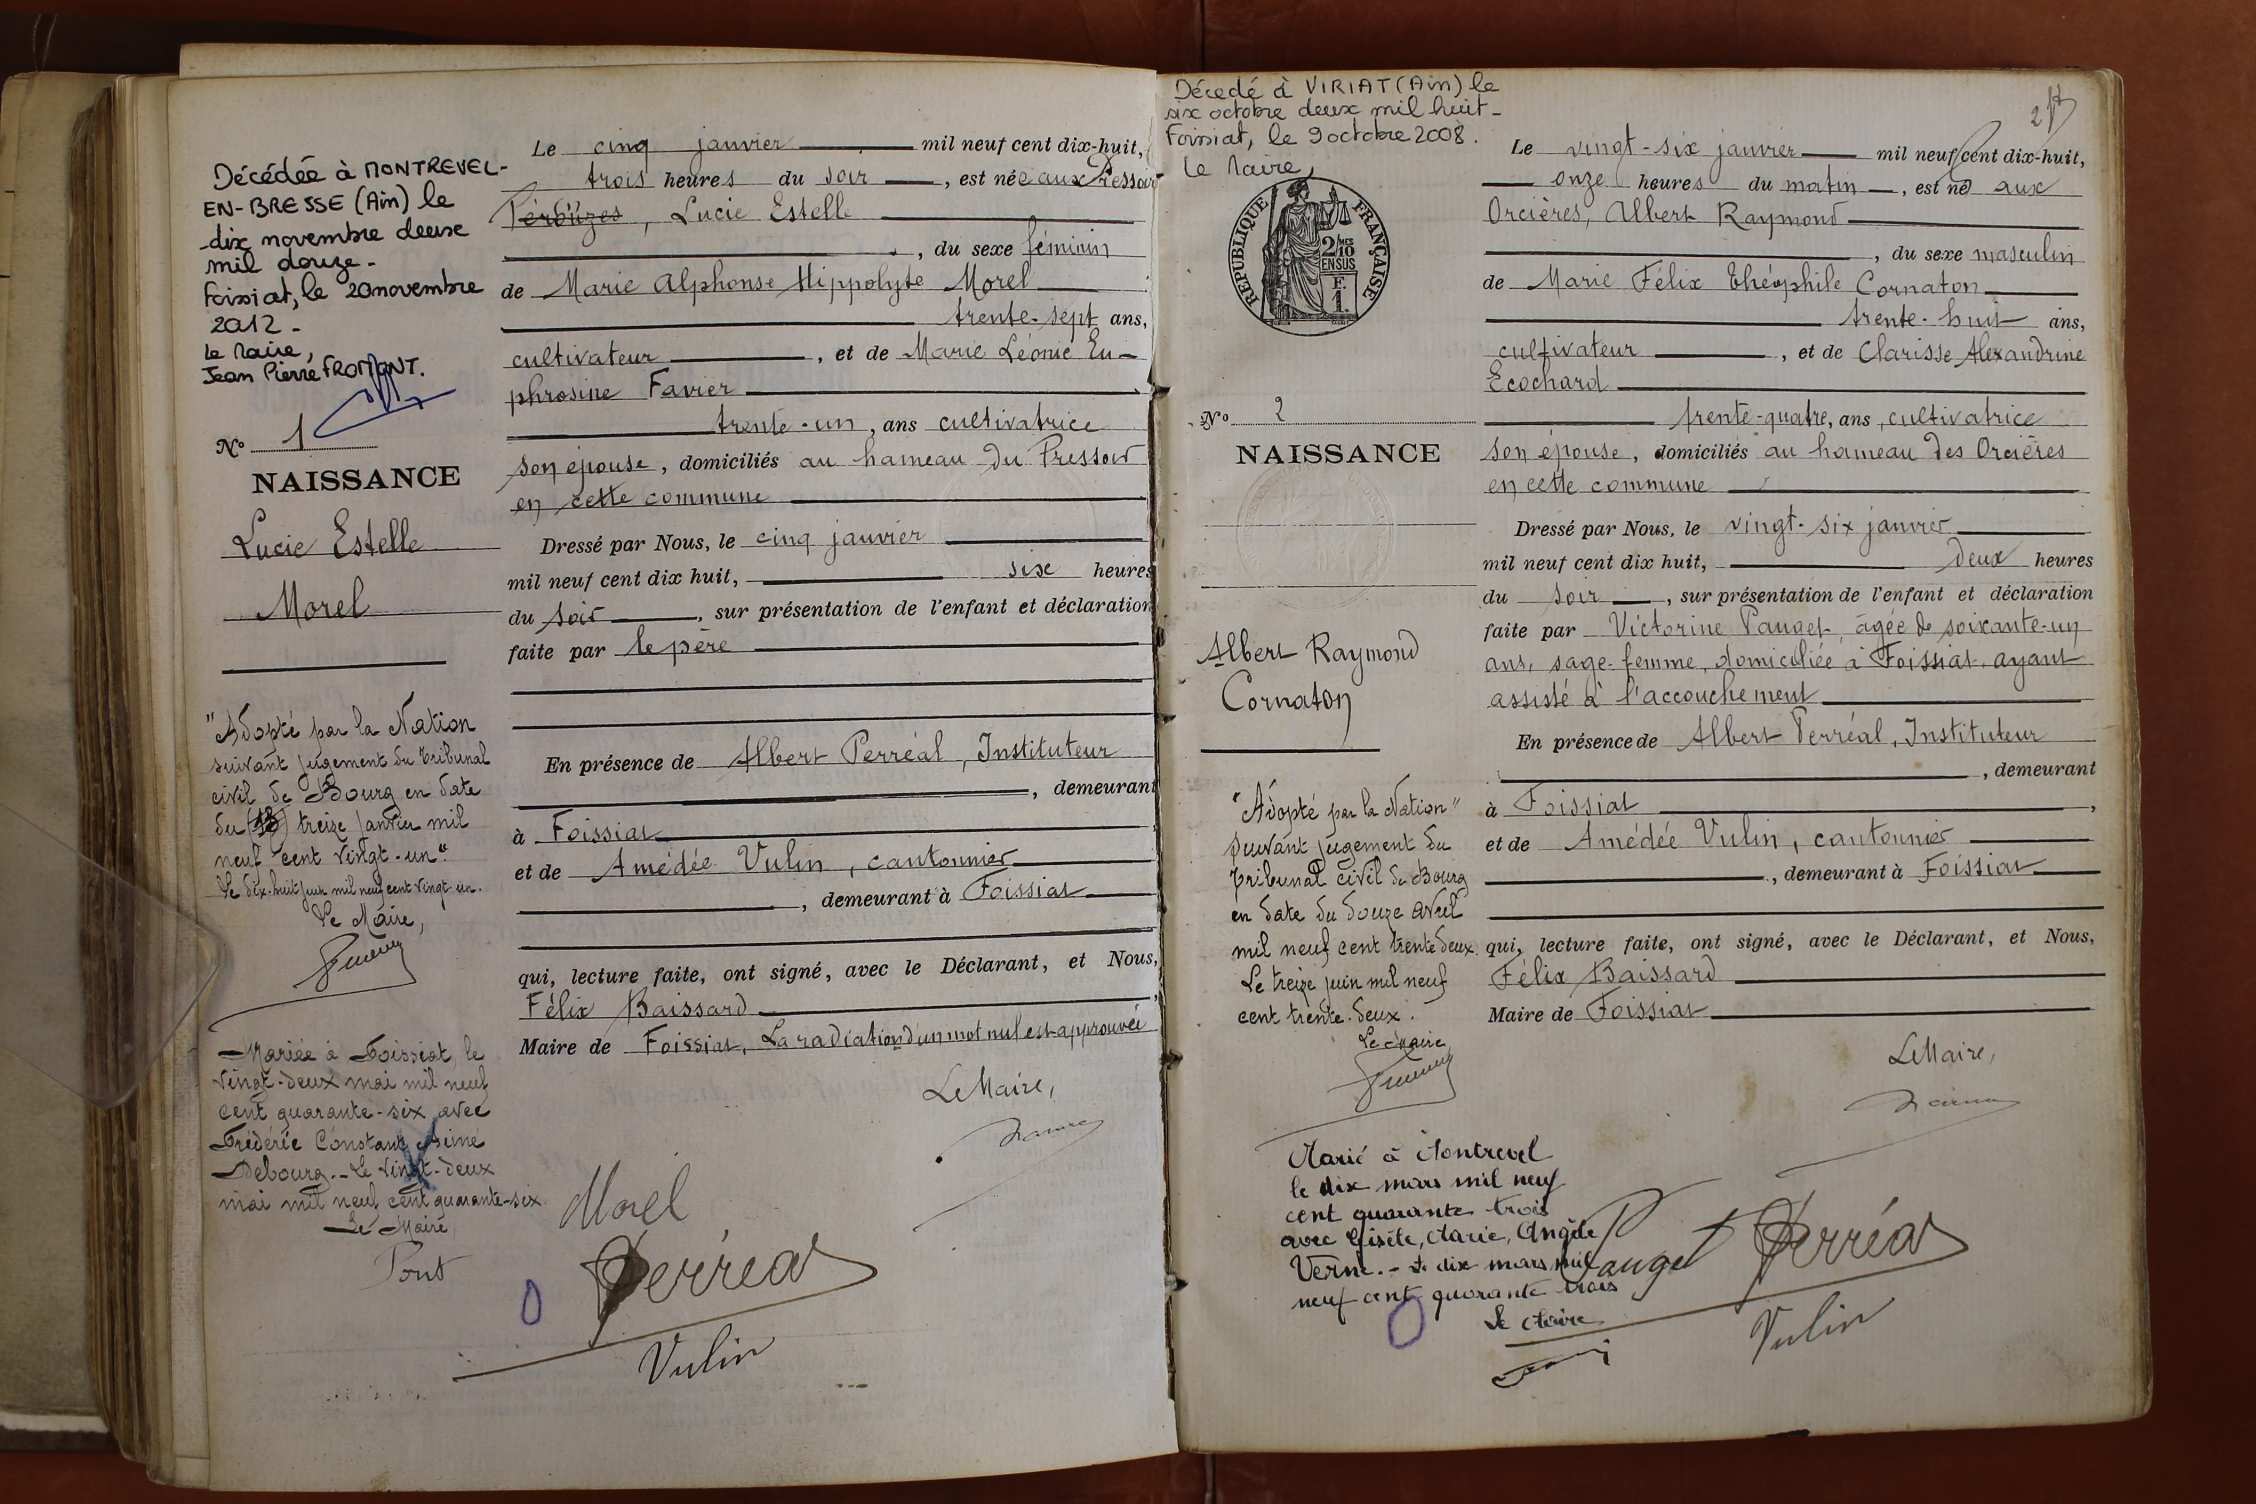 Décédée à MONTREVEL-
EN-BRESSE (Ain) le
dix novembre deux
mil douze.
Foissiat, le 20 novembre
2012 -
Le Maire,
Jean Pierre FROMONT.
N° 1
NAISSANCE
Lucie Estelle
Morel
"Adopté par la Nation
suivant jugement du Tribunal
civil de Bourg en date
du (13) treize janvier mil
neuf cent vingt-un".
Le dix-huit juin mil neuf cent vingt un.
Le Maire,
Mariée à Foissiat, le
vingt-deux mai mil neuf
cent quarante-six avec
Frédéric Constant Aimé
Debourg.- Le vingt-deux
mai mil neuf cent quarante-six
Le Maire
Pont
Le cinq janvier mil neuf cent dix-huit,
trois heures du soir, est née aux Pressoir
Pérouzes, Lucie Estelle
, du sexe féminin
de Marie Alphonse Hippolyte Morel
trente-sept ans,
cultivateur, et de Marie Léonie Eu-
phrosine Favier
trente-un, ans cultivatrice
son épouse, domiciliés au hameau du Pressoir
en cette commune
Dressé par Nous, le cinq janvier
mil neuf cent dix huit, six heures
du soir, sur présentation de l'enfant et déclaration
faite par le père
En présence de Albert Perréal, Instituteur
, demeurant
à Foissiat
et de Amédée Vulin, cantonnier
, demeurant à Foissiat
qui, lecture faite, ont signé, avec le Déclarant, et Nous,
Félix Baissard
Maire de Foissiat, La radiation d'un mot nul est approuvée
Le Maire,
Morel
Perréal
Vulin
Décedé à VIRIAT (Ain) le
six octobre deux mil huit -
Foissiat, le 9 octobre 2008.
Le Maire,
RÉPUBLIQUE FRANÇAISE
2/10 MES
EN SUS
F.
1.
N° 2
NAISSANCE
Albert Raymond
Cornaton
"Adopté par la Nation"
suivant jugement du
Tribunal civil de Bourg
en date du douze avril
mil neuf cent trente deux.
Le treize juin mil neuf
cent trente-deux.
Le Maire
Marié à Montrevel
le dix mars mil neuf
cent quarante trois
avec Gisèle, Marie, Angèle
Verne.- Le dix mars mil
neuf cent quarante trois
Le Maire
Le vingt-six janvier mil neuf cent dix-huit,
onze heures du matin, est né aux
Orcières, Albert Raymond
, du sexe masculin
de Marie Félix Théophile Cornaton
trente-huit ans,
cultivateur, et de Clarisse Alexandrine
Ecochard
trente-quatre, ans, cultivatrice
son épouse, domiciliés au hameau des Orcières
en cette commune
Dressé par Nous, le vingt-six janvier
mil neuf cent dix huit, deux heures
du soir, sur présentation de l'enfant et déclaration
faite par Victorine Pauget, âgée de soixante-un
ans, sage-femme, domiciliée à Foissiat, ayant
assisté à l'accouchement
En présence de Albert Perréal, Instituteur
, demeurant
à Foissiat,
et de Amédée Vulin, cantonnier
, demeurant à Foissiat
qui, lecture faite, ont signé, avec le Déclarant, et Nous,
Félix Baissard
Maire de Foissiat
Le Maire,
Pauget Perréal
Vulin